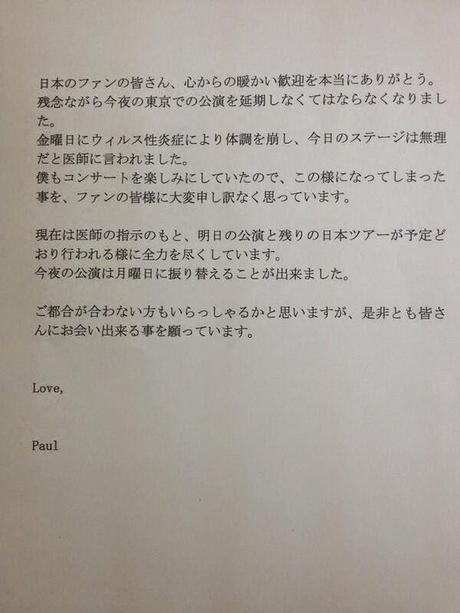 日本のファンの皆さん、心からの暖かい歓迎を本当にありがとう。
残念ながら今夜の東京での公演を延期しなくてはならなくなりまし
た。
金曜日にウィルス性炎症により体調を崩し、今日のステージは無理
だと医師に言われました。
僕もコンサートを楽しみにしていたので、この様になってしまった
事を、ファンの皆様に大変申し訳なく思っています。
現在は医師の指示のもと、明日の公演と残りの日本ツアーが予定ど
おり行われる様に全力を尽くしています。
今夜の公演は月曜日に振り替えることが出来ました。
ご都合が合わない方もいらっしゃるかと思いますが、是非とも皆さ
んにお会い出来る事を願っています。
Love,
Paul